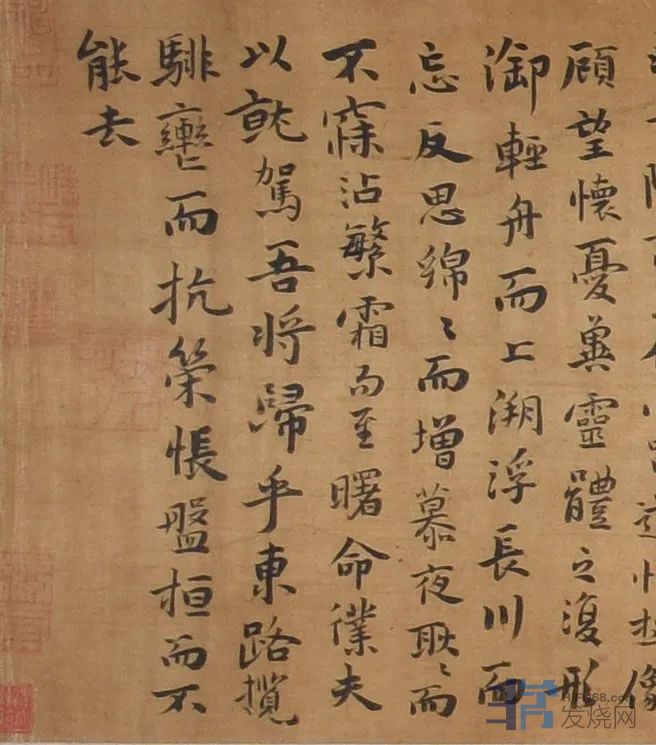 顧望懷憂冀靈體之復形
御輕舟而上溯浮長川而
忘反思綿〻而增慕夜耿〻而
不寐沾繁霜而至曙命僕夫
以就駕吾將歸乎東路攬
騑轡而抗策悵盤桓而不
能去
发烧网